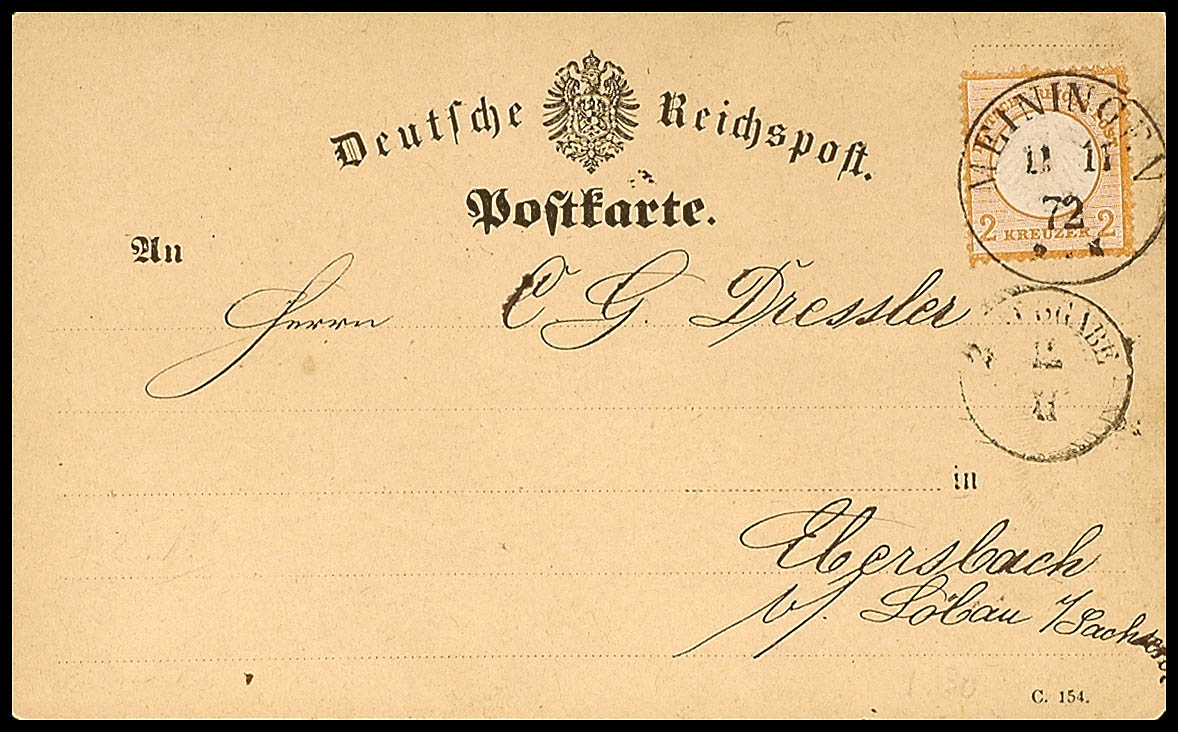 Deutsche Reichspost.
Postkarte.
MEININGEN
11 11
72
2 KREUZER 2
An
Herrn C G. Dressler
AUSGABE
12
11
in
Ebersbach
b/. Löbau i/Sachsen
C. 154.